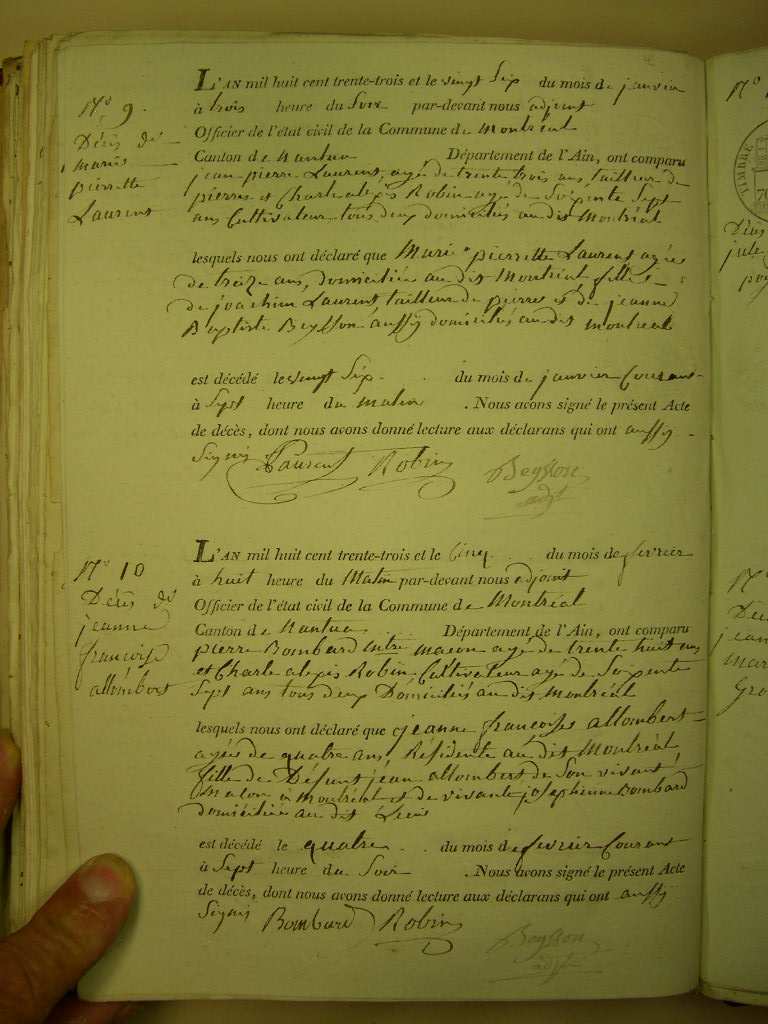 N.o 9.
Décés de
marie
pierrette
Laurent
L'AN mil huit cent trente-trois et le vingt six du mois de janvier
à trois heure du Soir par-devant nous adjoint
Officier de l'état civil de la Commune de Montréal
Canton de Nantua Département de l'Ain, ont comparu
jean pierre Laurent, agé de trente trois ans tailleur de
pierres et Charle alexis Robin agé de Soixente Sept
ans Cultivateur tous deux domiciliés au dit Montréal
lesquels nous ont déclaré que Marie pierrette Laurent agée
de treize ans, domiciliée au dit Montréal fille
de joachim Laurent tailleur de pierres et de jeanne
Baptiste Beysson aussy domiciliés au dit montréal
est décédé le vingt Six du mois de janvier Courant
à Sept heure du matin . Nous avons signé le présent Acte
de décès, dont nous avons donné lecture aux déclarans qui ont aussy
Signés Laurent Robin Beysson
adjt
N.o 10
Décés de
jeanne
françoise
allombert
L'AN mil huit cent trente-trois et le Cinq du mois de fevrier
à huit heure du Matin par-devant nous adjoint
Officier de l'état civil de la Commune de Montréal
Canton de Nantua Département de l'Ain, ont comparu
pierre Bombard maçon agé de trente huit ans
et Charle alexis Robin Cultivateur agé de Soixente
Sept ans tous deux Domiciliés au dit montréal
lesquels nous ont déclaré que jeanne françoise allombert
agée de quatre ans, Résidente au dit Montréal
fille de Défunt jean allombert de Son vivant
Maçon à Montréal et de vivante josephinne Bombard
domiciliée au dit Lieus
est décédé le quatre du mois de fevrier Courant
à Sept heure du Soir . Nous avons signé le présent Acte
de décès, dont nous avons donné lecture aux déclarans qui ont aussy
Signés Bombard Robin Beysson
adjt
TIMBRE